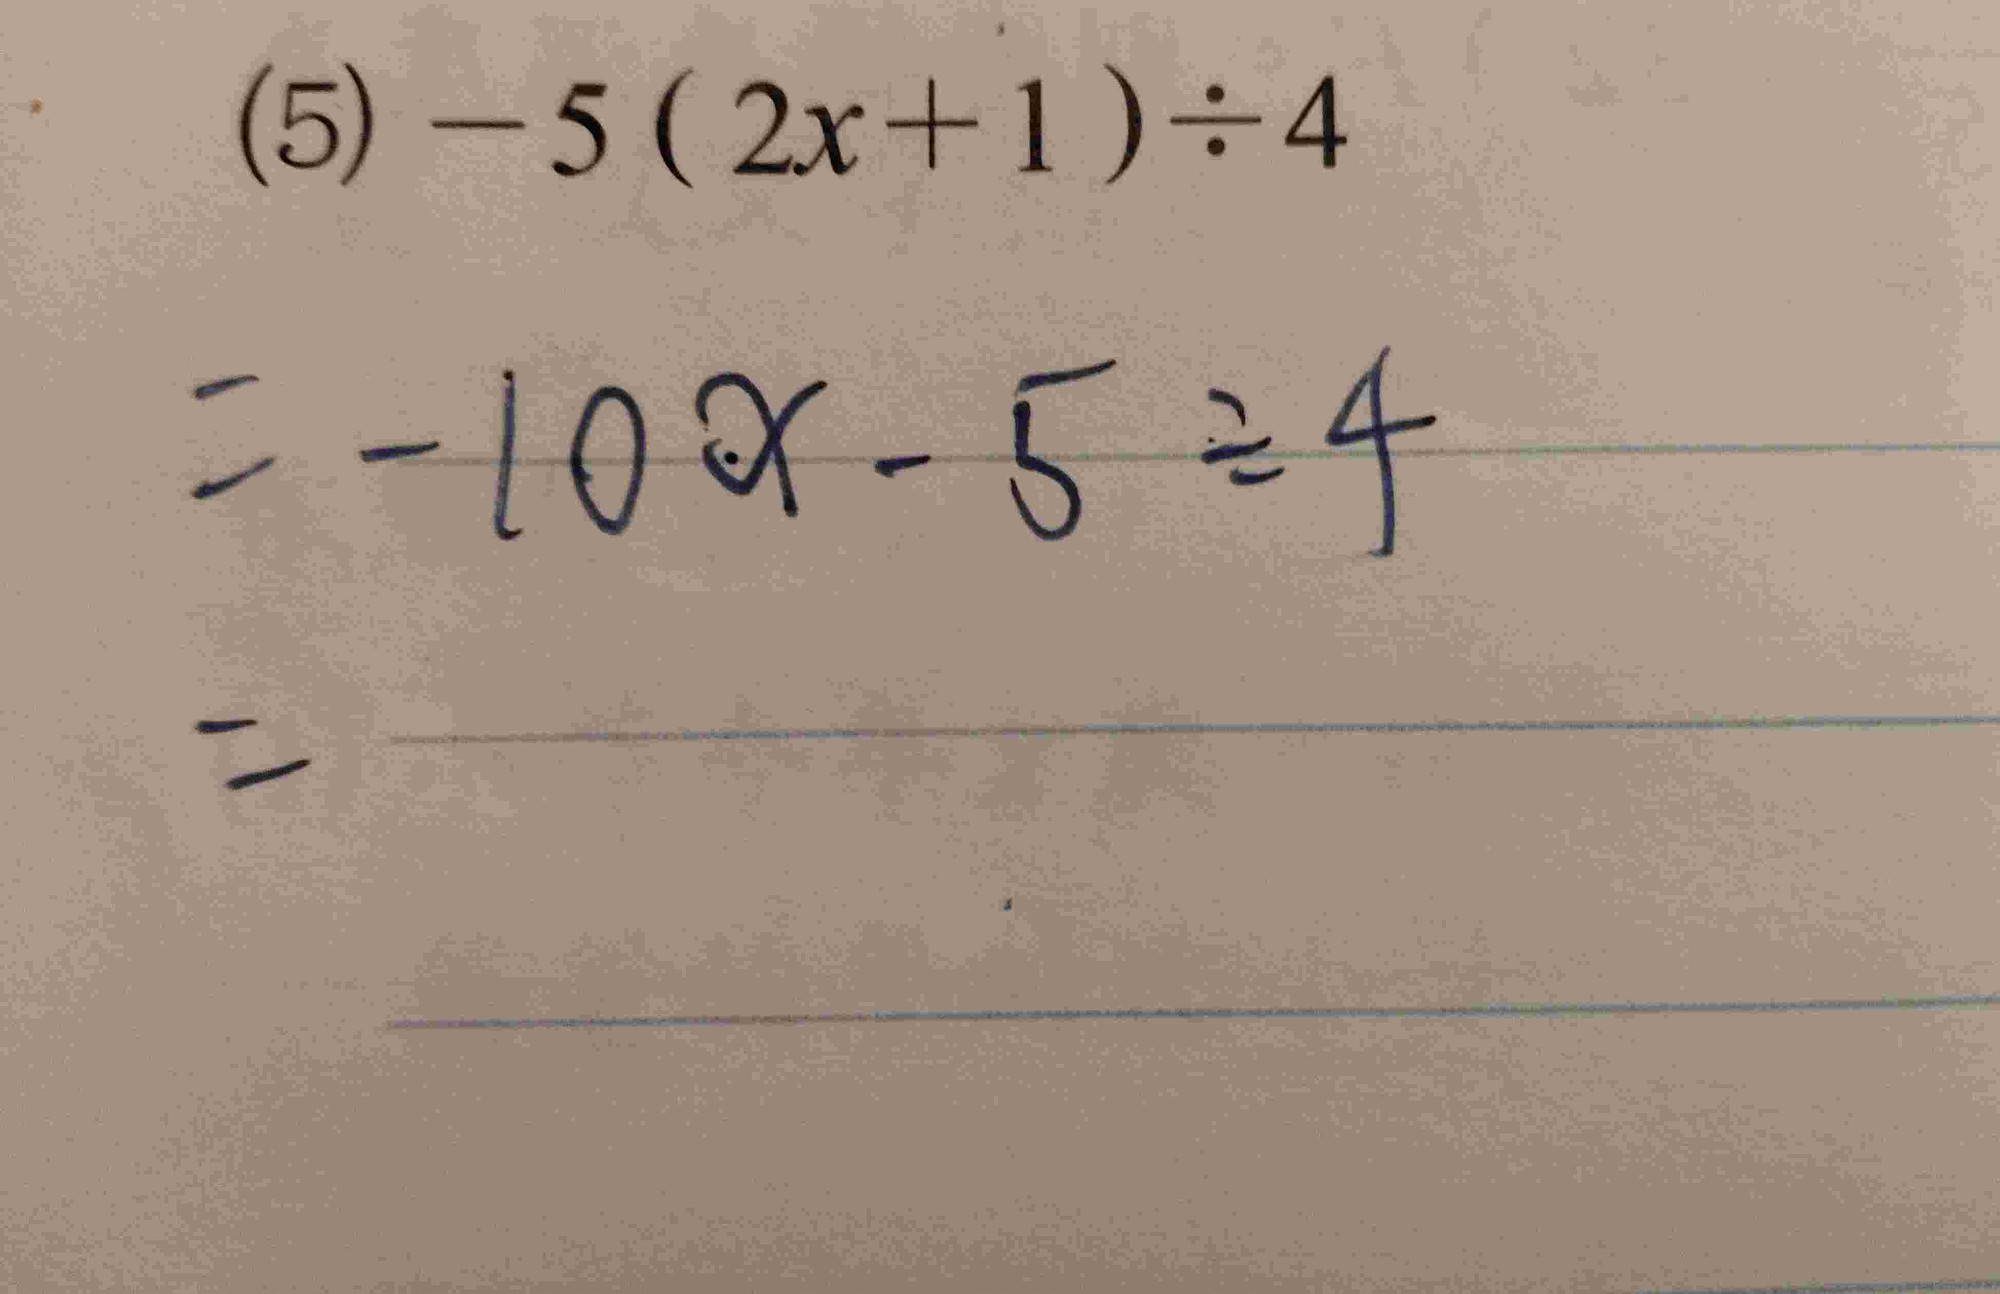 (5) －5(2x＋1)÷4
= -10x - 5 ÷ 4
=